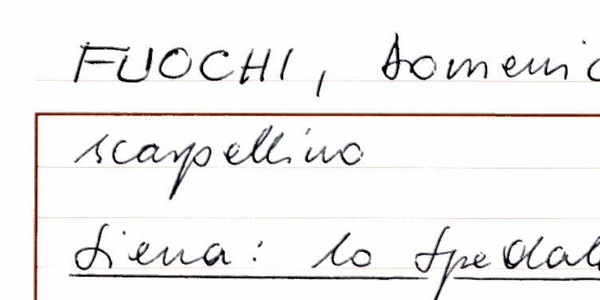 FUOCHI, Domenic
scarpellino
Siena: lo Spedal